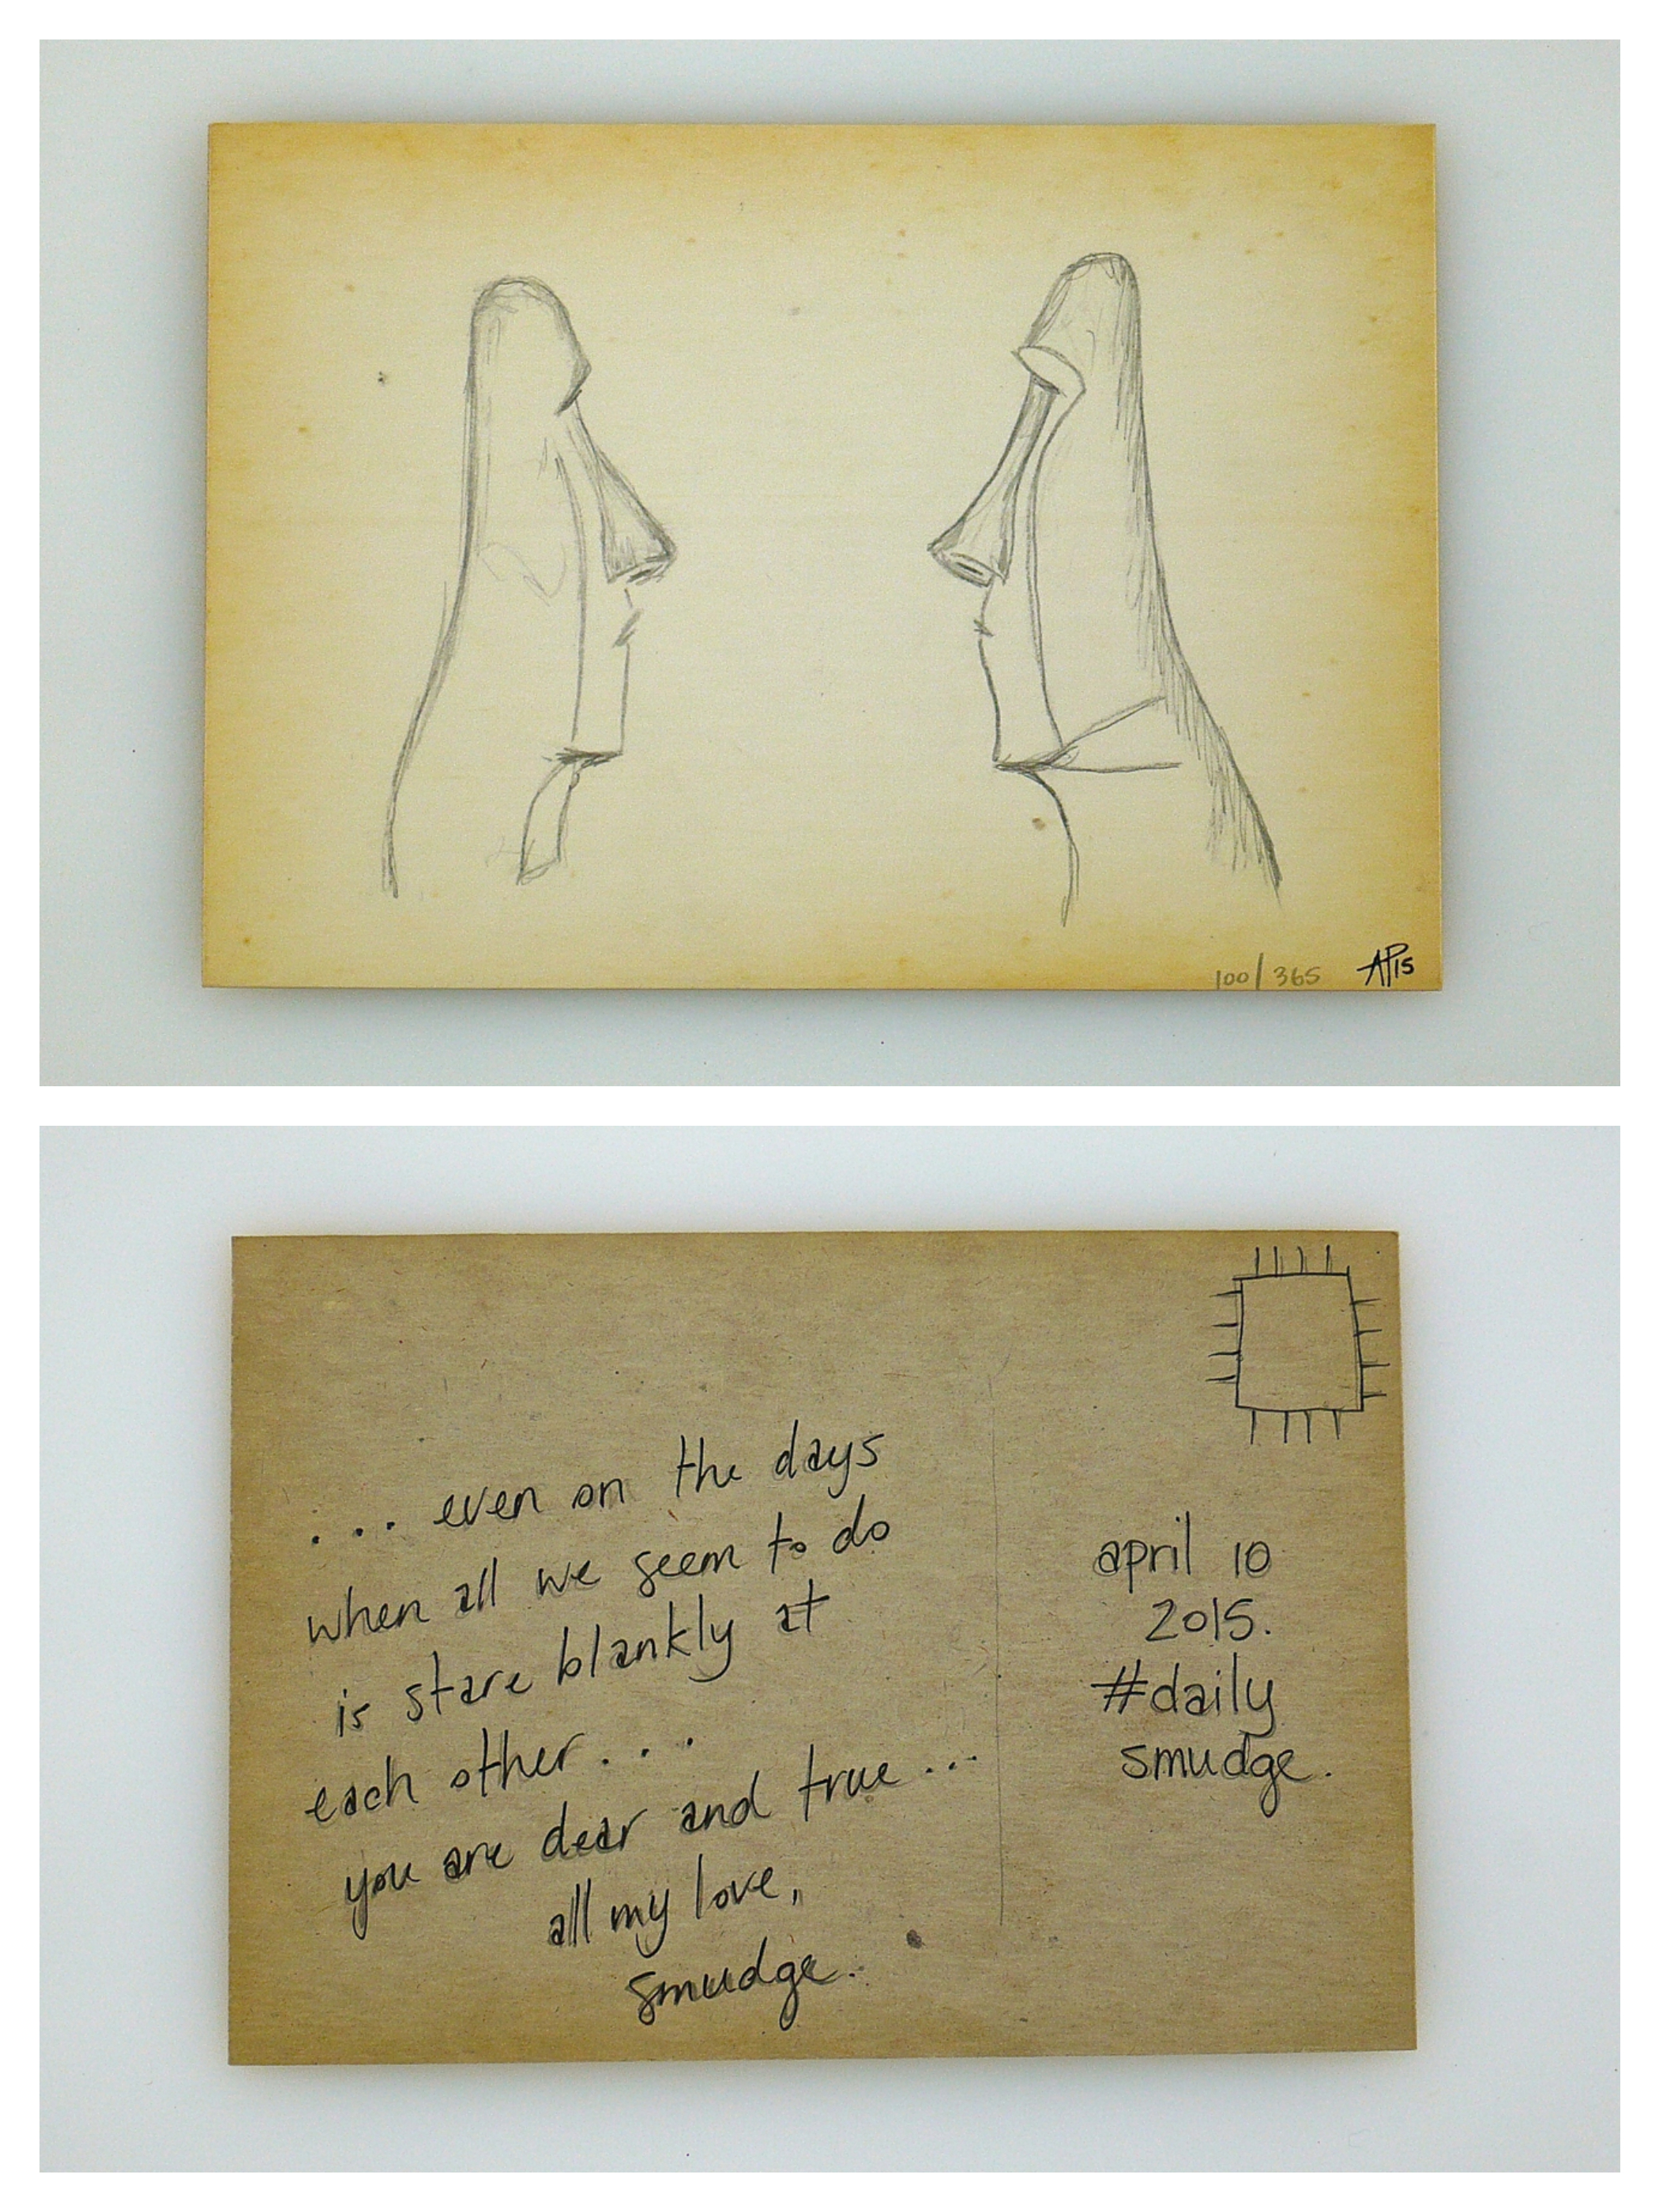 100/365 AP15
... even on the days
when all we seem to do
is stare blankly at
each other....
you are dear and true...
all my love,
smudge.
april 10
2015.
#daily
smudge.